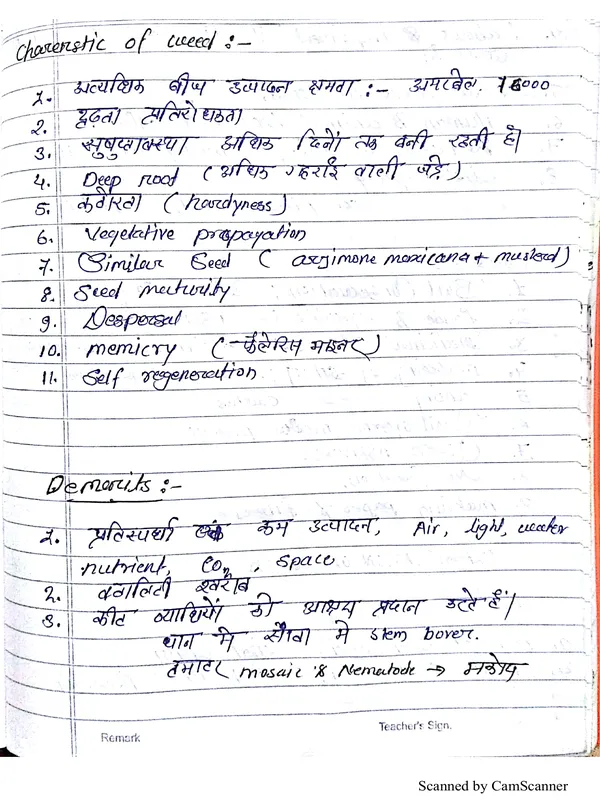 Charerstic of weed :-
1. अत्यधिक बीज उत्पादन क्षमता :- अमरबेल. 16000
2. दृढ़ता प्रतिरोधकता
3. सुषुप्तावस्था अधिक दिनों तक बनी रहती है।
4. Deep rood (अधिक गहराई वाली जड़े)
5. कठोरता (hardyness)
6. Vegetative propayation
7. Similar Seed (arjimone maxicana + musterd)
8. Seed maturity
9. Despersal
10. memicry (-फैलेरिस माइनर)
11. Self regeneration
Demerits :-
1. प्रतिस्पर्धा कम उत्पादन, Air, light, weater
nutrient, Co2, space
2. क्वालिटी खराब
3. कीट व्याधियों को आश्रय प्रदान करते हैं।
धान में सौवा मे stem borer.
टमाटर mosaic & Nematode → मकोय
Remark
Teacher's Sign.
Scanned by CamScanner